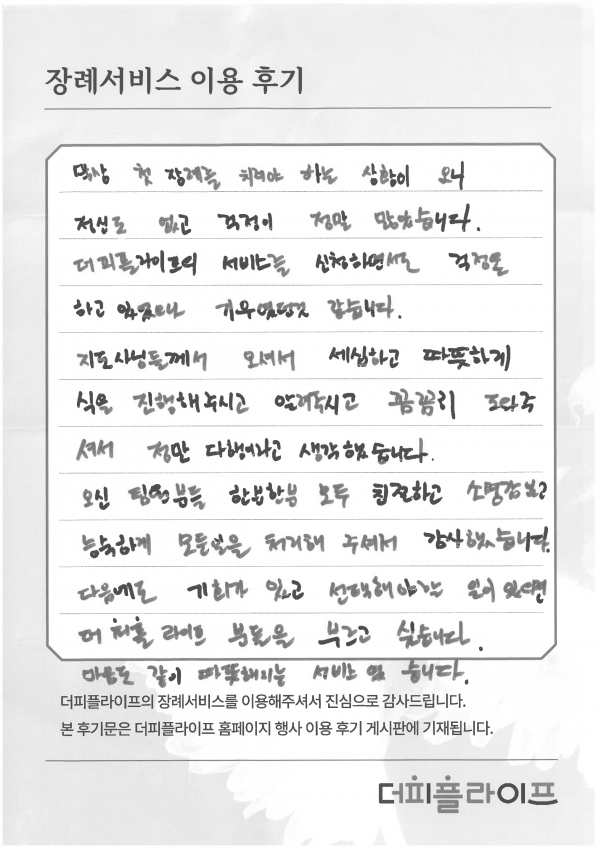 장례서비스 이용 후기
막상 첫 장례를 치러야 하는 상황이 오니
정신도 없고 걱정이 정말 많았습니다.
더피플라이프의 서비스를 신청하면서도 걱정을
하고 있었으나 기우였던것 같습니다.
지도사님들께서 오셔서 세심하고 따뜻하게
식을 진행해주시고 알려주시고 꼼꼼히 도와주
셔서 정말 다행이라고 생각했습니다.
오신 팀원분들 한분한분 모두 친절하고 소명감 있고
능숙하게 모든일을 처리해 주셔서 감사했습니다.
다음에도 기회가 있고 선택해야하는 일이 있다면
더 피플 라이프 분들을 부르고 싶습니다.
마음도 같이 따뜻해지는 서비스 였 습니다.
더피플라이프의 장례서비스를 이용해주셔서 진심으로 감사드립니다.
본 후기문은 더피플라이프 홈페이지 행사 이용 후기 게시판에 기재됩니다.
더피플라이프